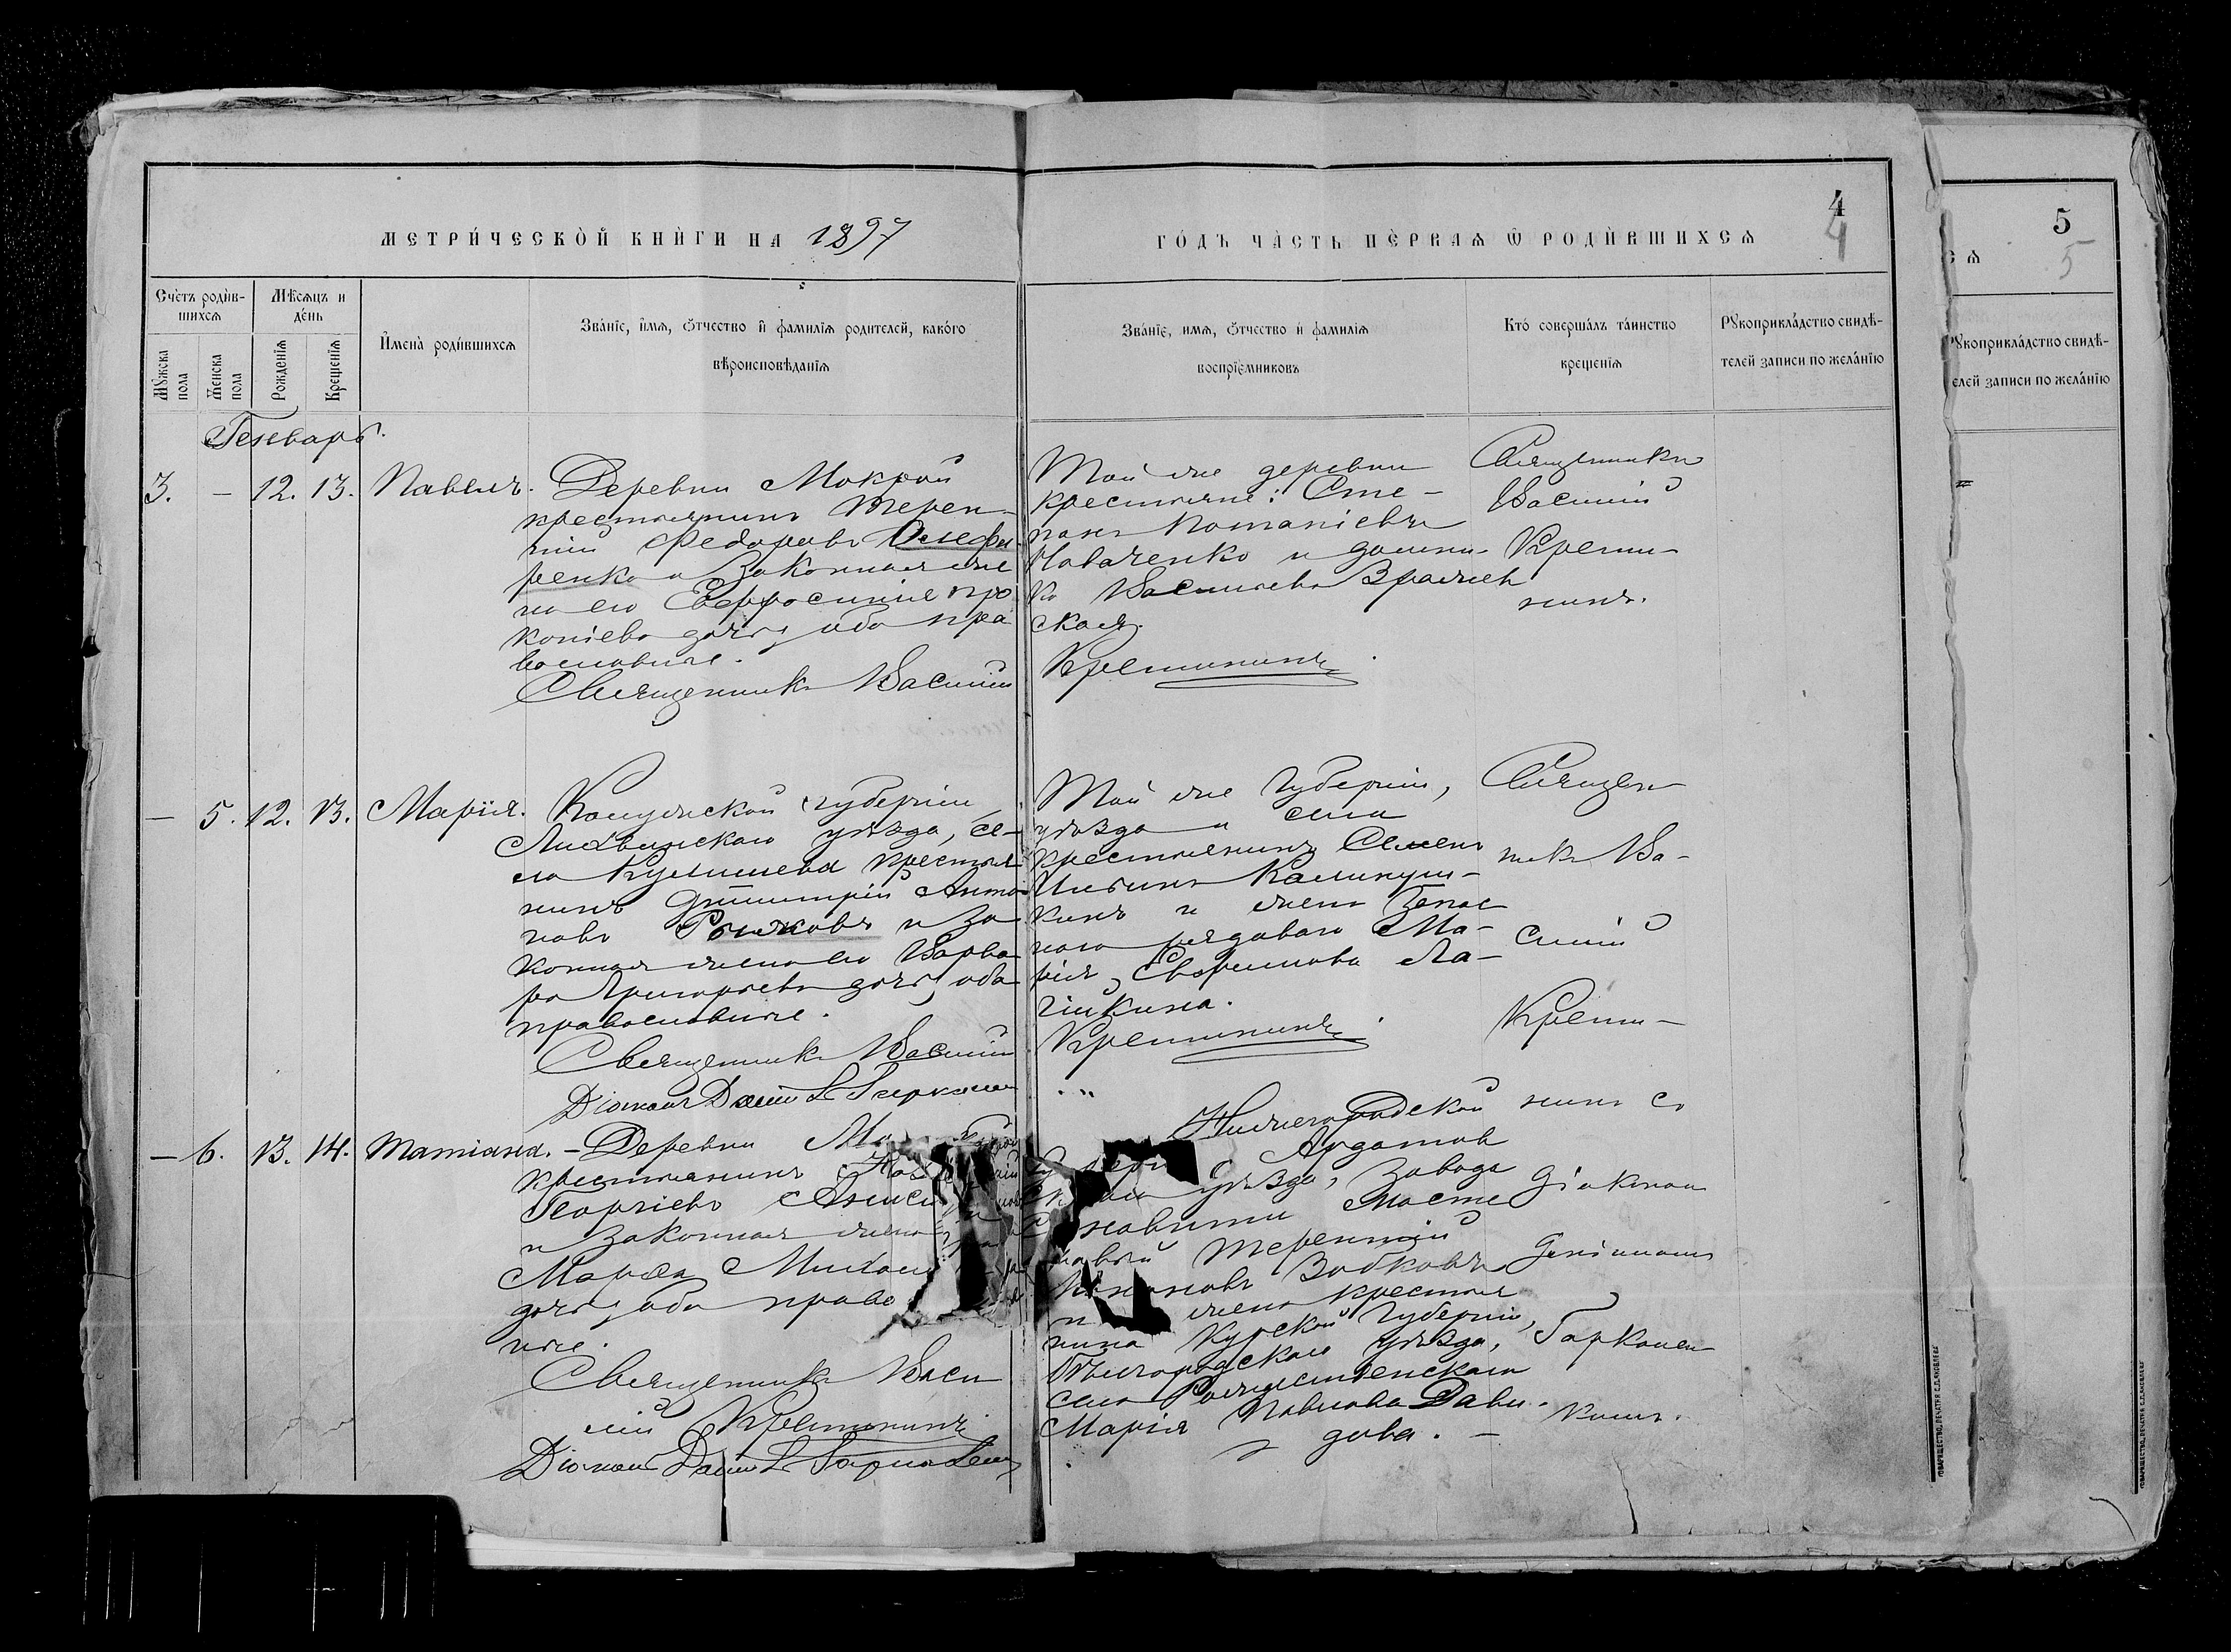 4
4
МЕТРИ́ЧЕСКОЙ КНИ́ГИ НА 1897
ГО́ДЪ ЧА́СТЬ ПЕ́РВАѦ Ѿ РОДИ́ВШИХСѦ
Сче́тъ роди́в-
шихсѧ
Мѣ́сѧцъ и
де́нь
Мꙋжска
пола
Женска
пола
Рожденїѧ
Крещенїѧ
И҆мена̀ роди́вшихсѧ
Зва́нїе, и҆́мѧ, ѻ҆́тчество и҆ фамилїѧ родителей, како́го
вѣроисповѣданїѧ
Зва́нїе, имѧ, ѻ҆́тчество и҆ фамилїѧ
воспрїемниковъ
Кто̀ соверша́лъ та́инство
крещенїѧ
Рꙋкоприкла́дство свидѣ-
телей записи по жела́нїю
Генварь.
3. - 12. 13. Павелъ.
Деревни Мокрой
крестьянинъ Терен-
тій Федоровъ Олефи-
ренко и законная же
на его Евфросинія Про
копіева дочь, оба пра
вославные.
Священникъ Василій
Той же деревни
крестьяне: Сте-
панъ
и
ка Васильева
ская.
Крешининъ.
Священникъ
Василій
Креши-
нинъ.
— 5. 12. 13. Марія.
Калужской губерніи
Лихвинскаго уѣзда, се-
ла Кулешева крестья
нинъ Димитрій Анто
новъ Рыжковъ и за
конная жена его Варва
ра Григорьева дочь, оба
православные.
Священникъ Василій
Діаконъ Даніилъ
Той же Губерніи,
уѣзда и села
крестьянинъ Семенъ
и жена запас
наго рядоваго Ма-
рія Ефимова Ла-
гишкина.
Крешининъ.
Священ
никъ Ва-
силій
Креши-
нинъ съ
діакономъ
Даніиломъ
— 6. 13. 14. Татіана.
- Деревни Мо
крестьянинъ
Георгіевъ
и законная жена
Марѳа Михаи
дочь, оба право
ные.
Священникъ Васи
лій Крешининъ
Діаконъ Даніилъ
Нижегородской
Ардатов
уѣзда, завода
масте
Терентій
Зобковъ
и жена крестья
нина Курской Губерніи,
Бѣлгородскаго уѣзда,
села Рождественскаго
Марія Павлова Давы-
дова. —
кимъ.
5
5
СѦ
Рꙋкоприкла́дство свидѣ-
елей записи по жела́нїю
ТОВАРИЩЕСТВО „ПЕЧАТНЯ С. П. ЯКОВЛЕВА“
ТОВАРИЩЕСТВО „ПЕЧАТНЯ С. П. ЯКОВЛЕВА“